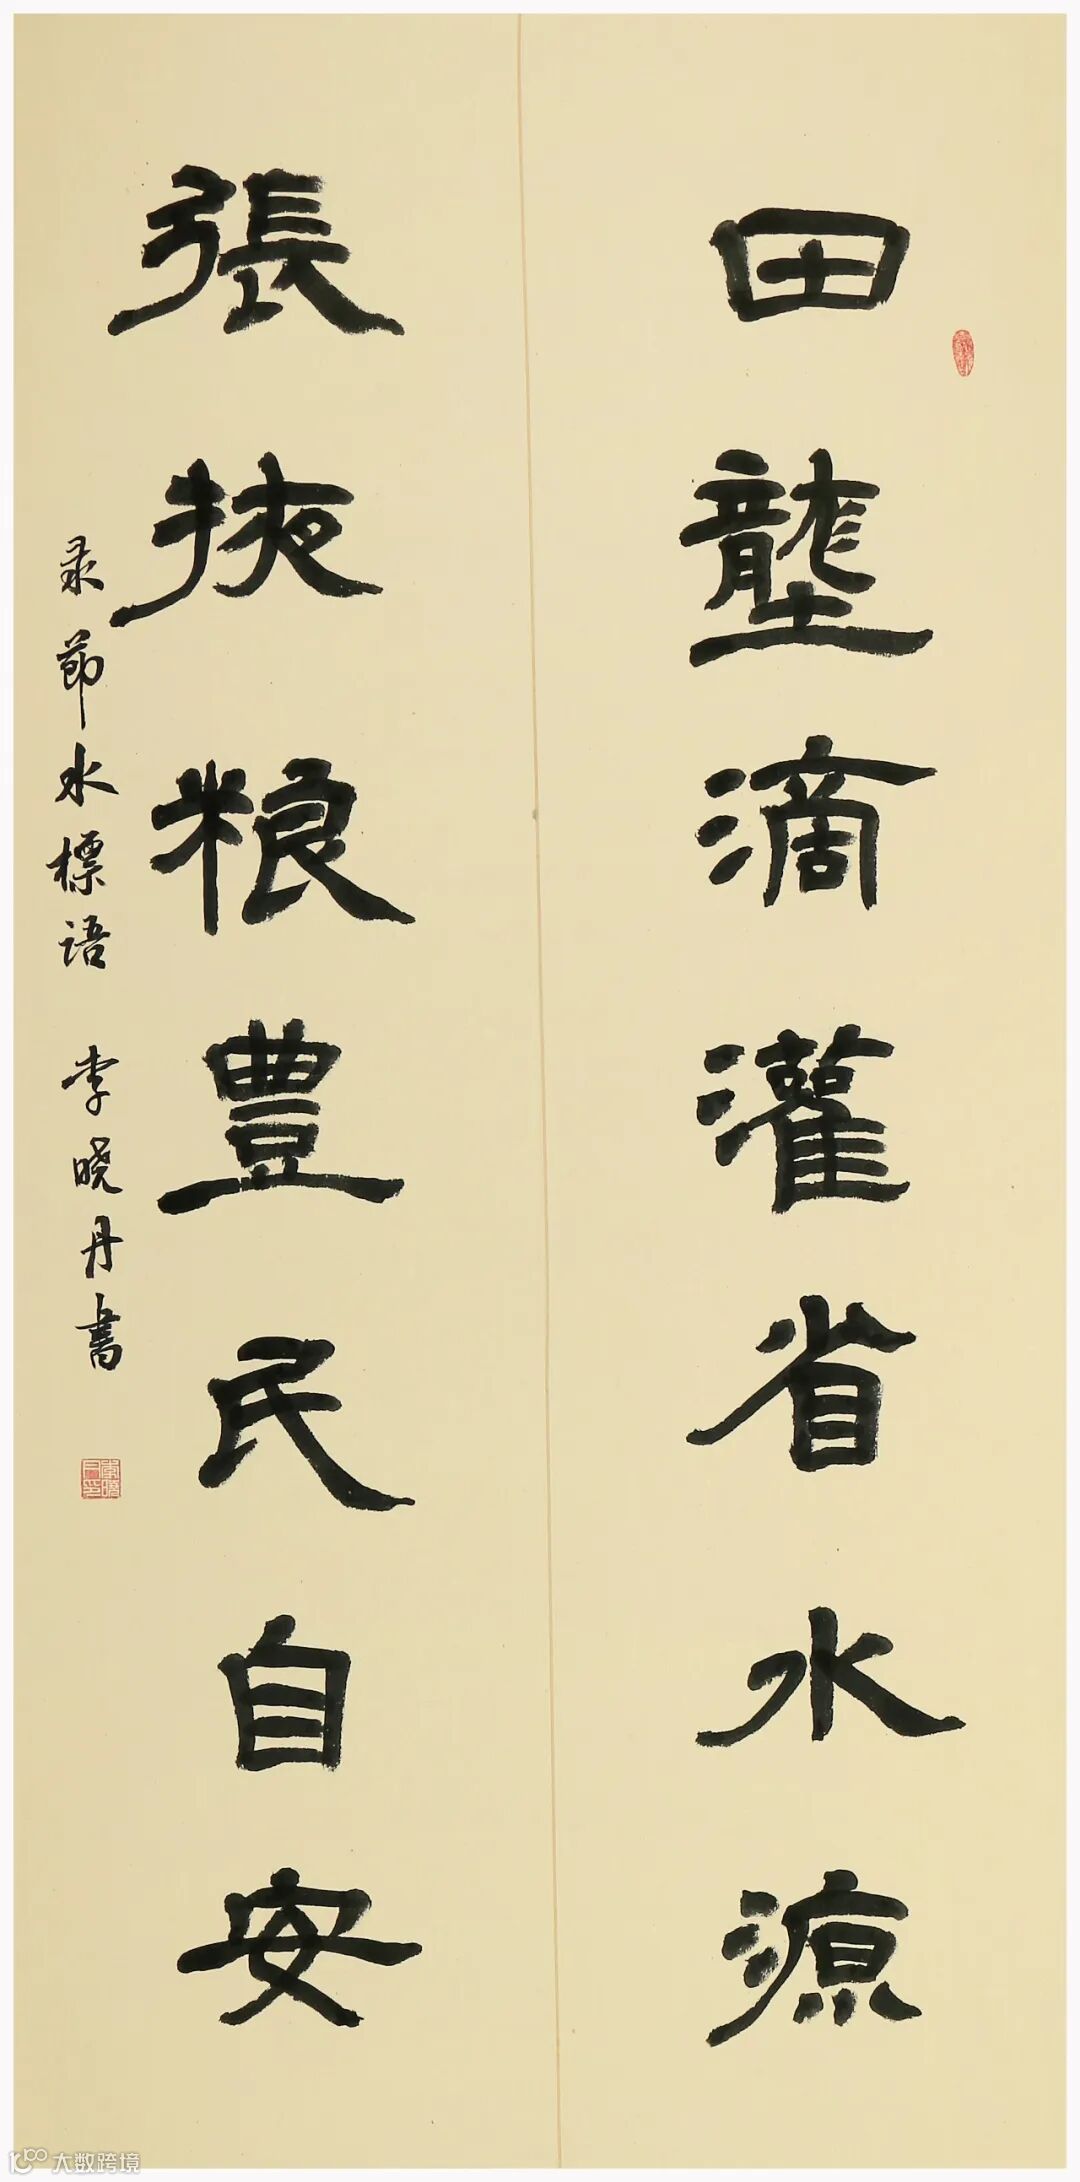 田壟滴灌省水源
張掖粮豊民自安
录節水標语 李晓丹書
大数跨境